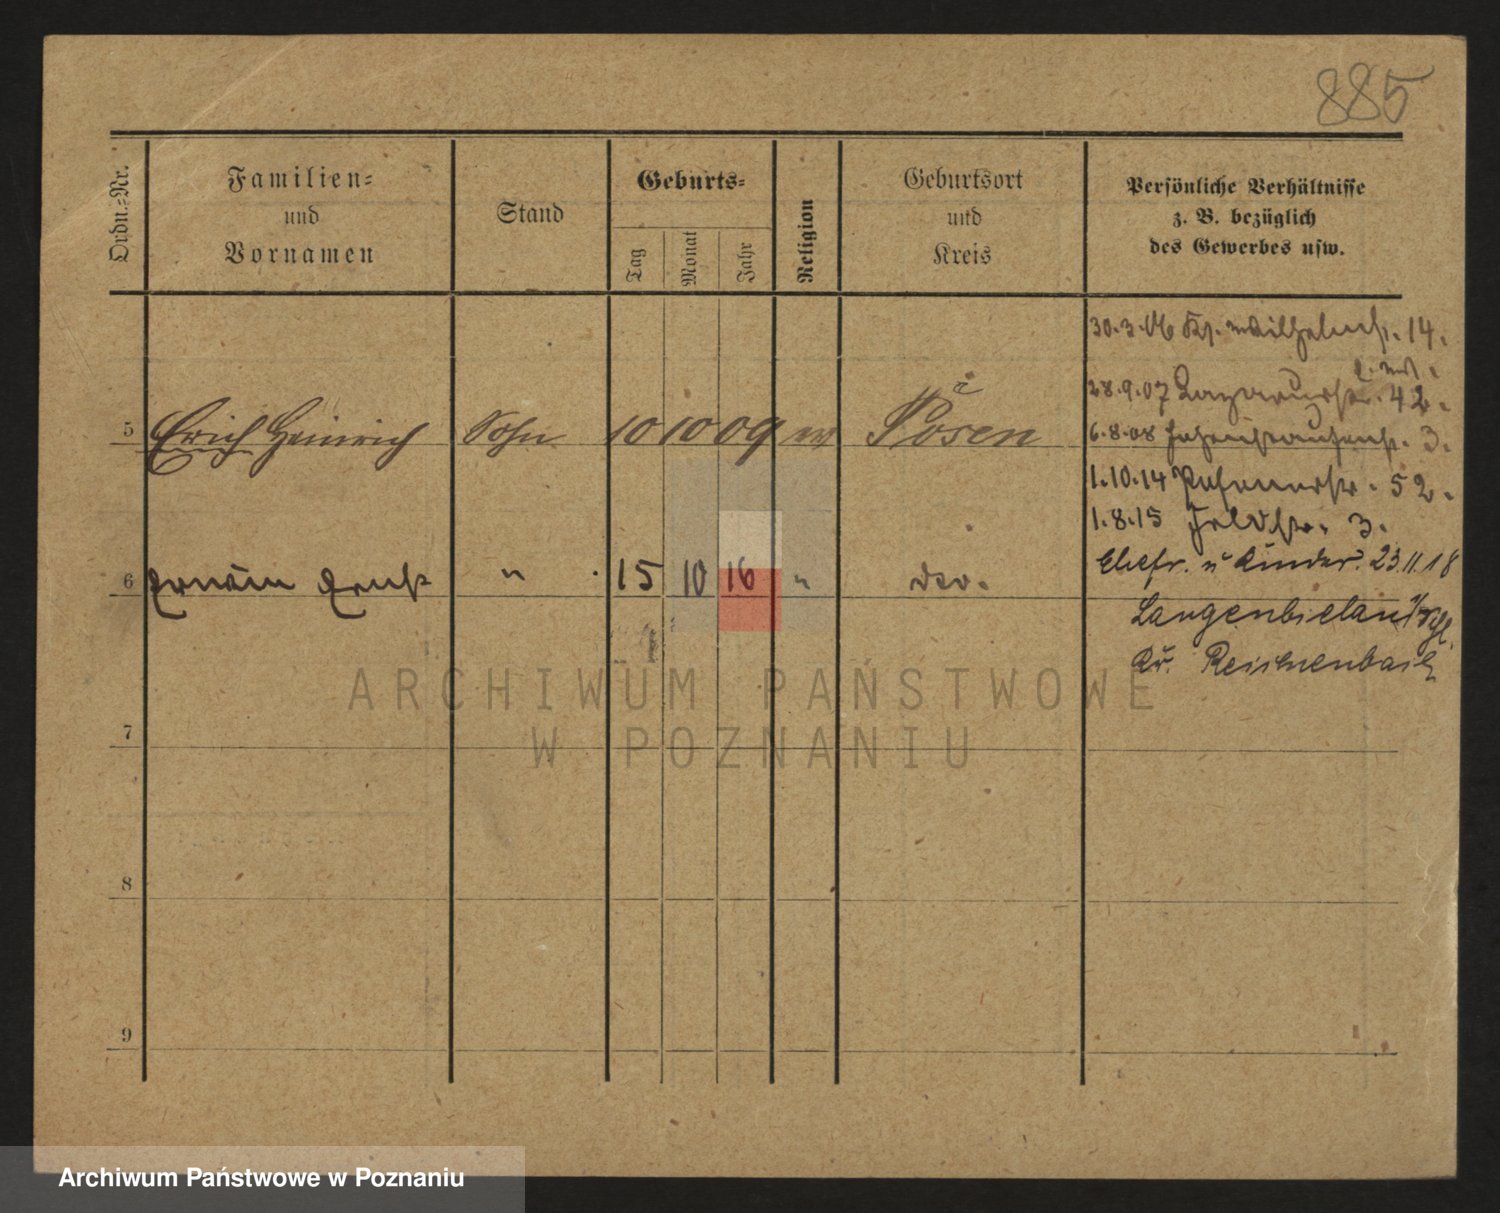 885
Ordn.-Nr.
Familien-
und
Vornamen
Stand
Geburts-
Tag
Monat
Jahr
Religion
Geburtsort
und
Kreis
Persönliche Verhältnisse
z. B. bezüglich
des Gewerbes usw.
30.3.06 Kl. Wilhelmstr. 14.
28.9.07 Lazarusstr. 42.
5 Erich Heinrich Sohn 10 10 09 ev Posen
6.8.08 3.
1.10.14 Posenerstr. 52.
1.8.15 Feldstr. 3.
6 Erwin Ernst " 15 10 16 " dto.
Ehefr. u Kinder 23.11.18
Langenbielau
Kr. Reichenbach
7
8
9
ARCHIWUM PAŃSTWOWE
W POZNANIU
Archiwum Państwowe w Poznaniu